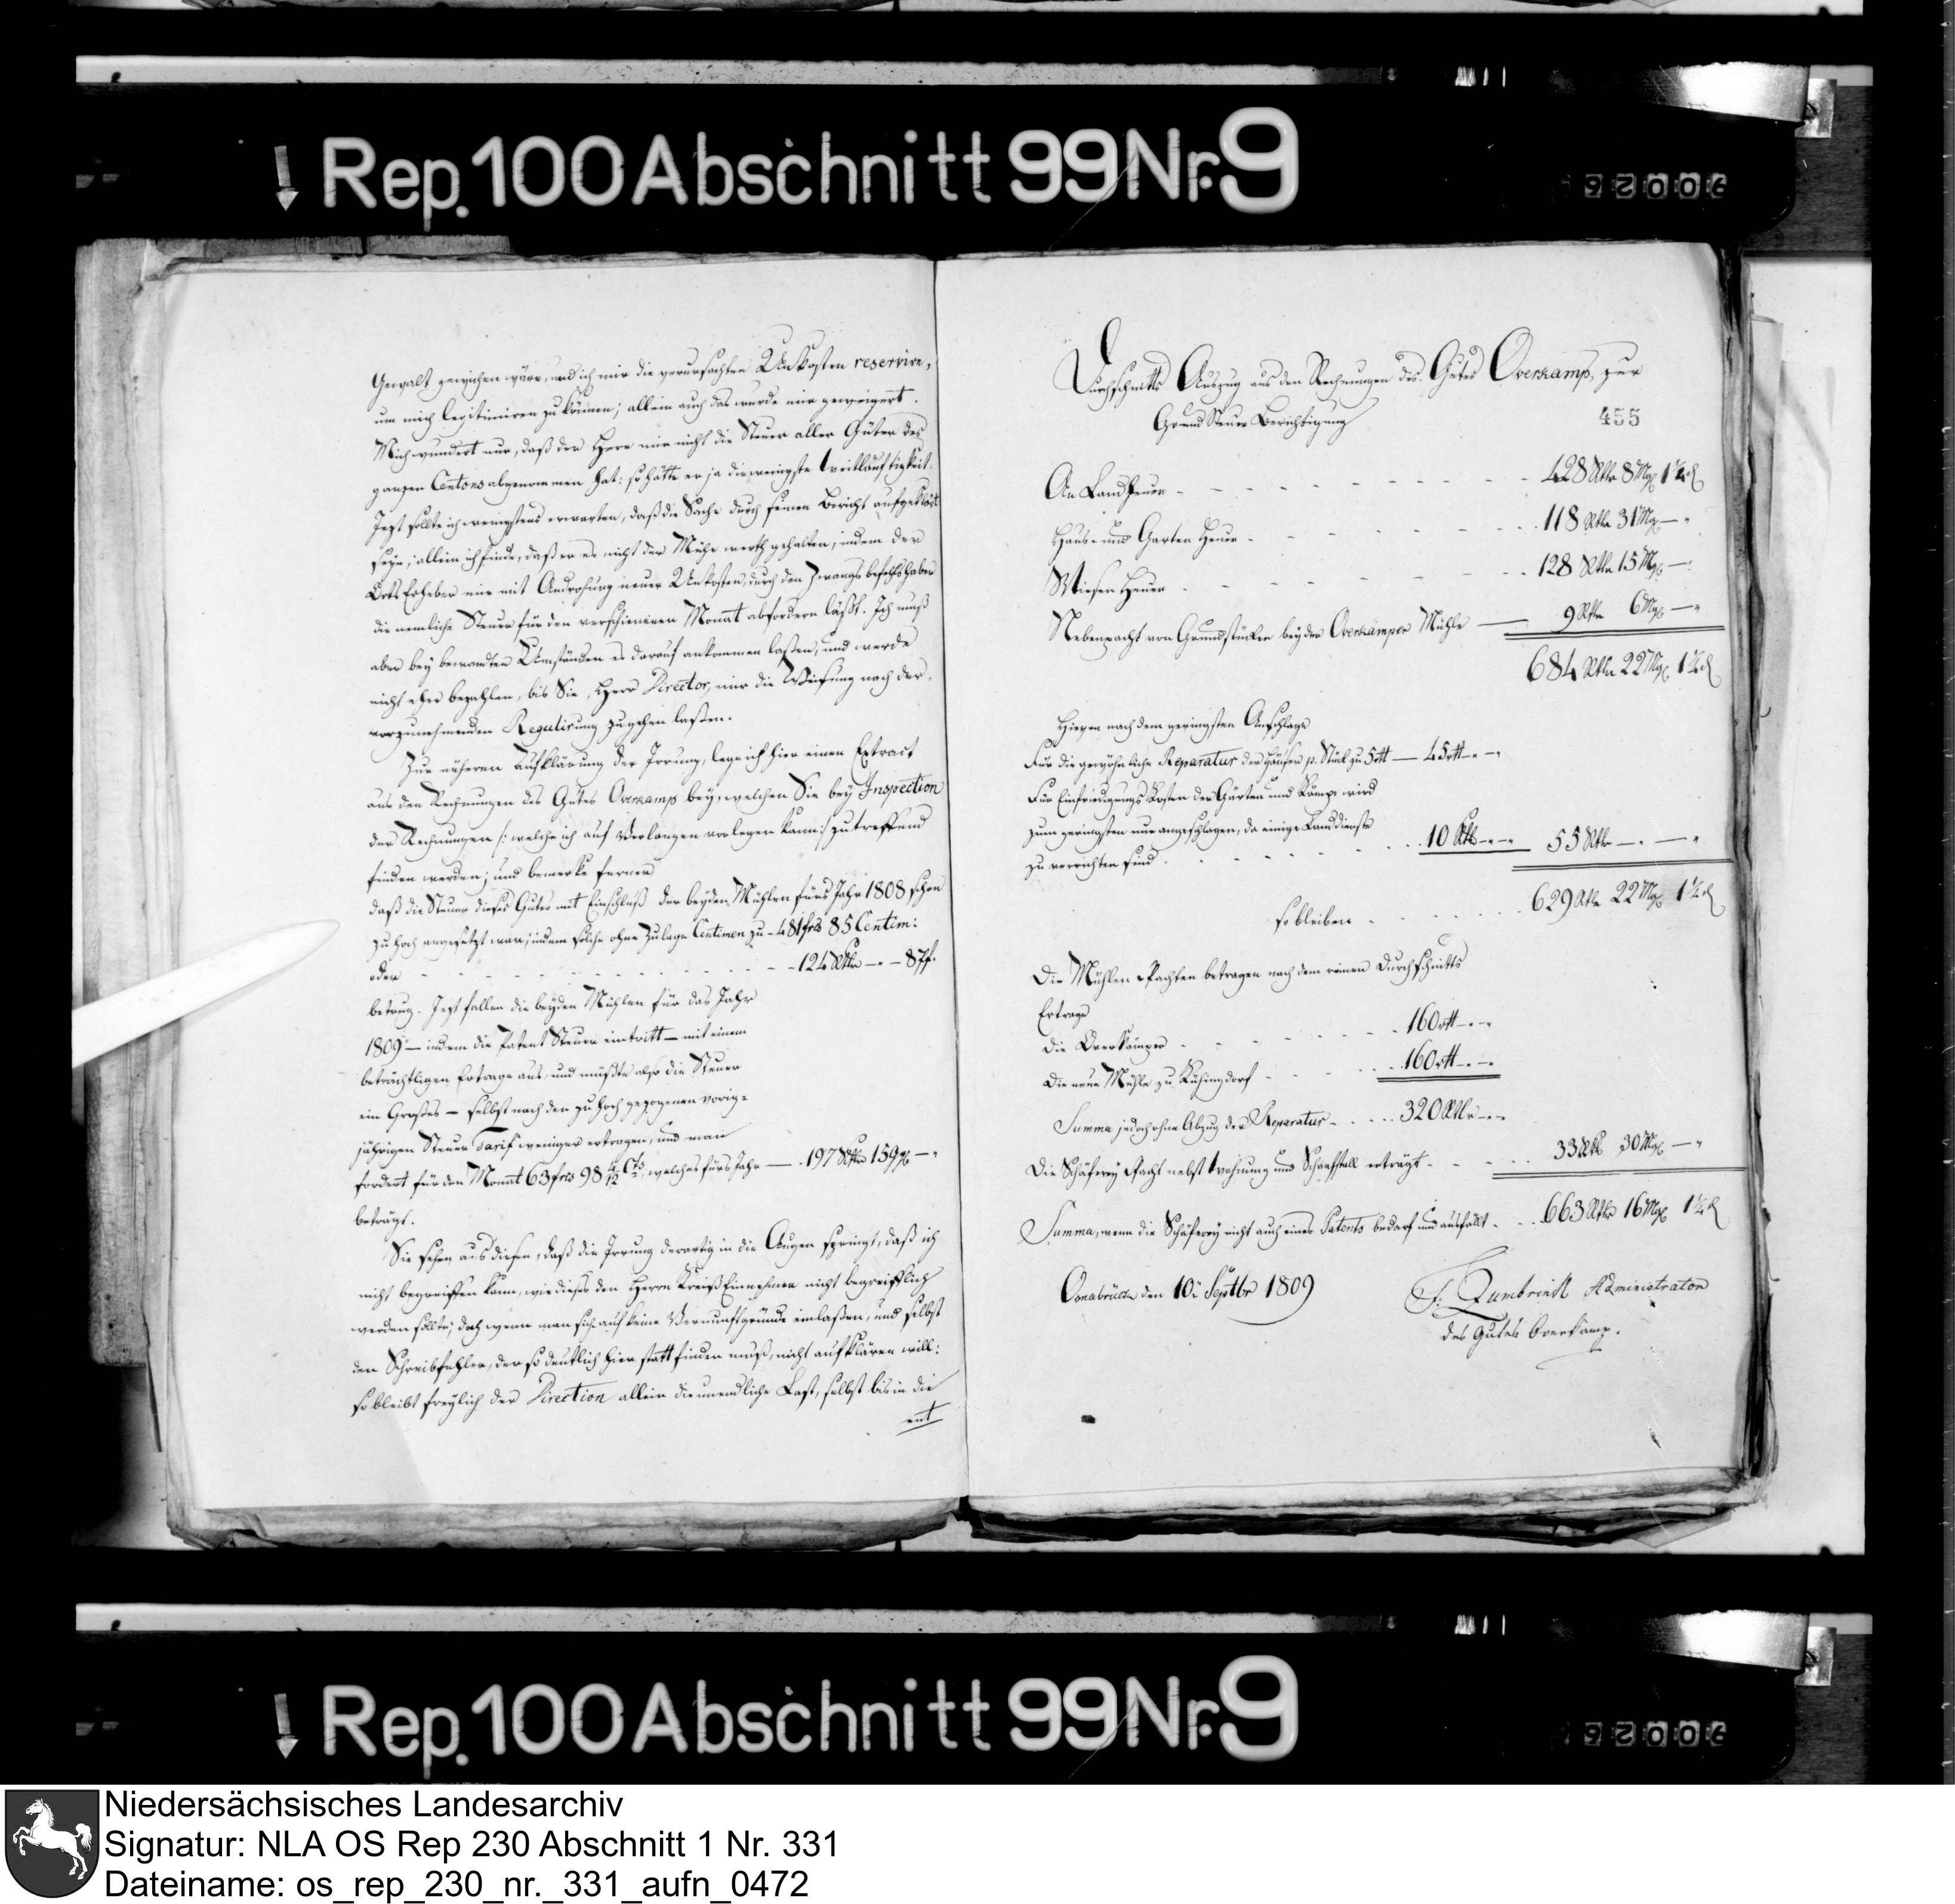 Rep. 100 Abschnitt 99 Nr. 9
Gewalt gewichen wäre, und ich mir die verursachten Unkosten reservire,
um mich legitimiren zu können; allein auch das wurde mir geweigert.
Mich wundert nur, daß der Herr mir nicht die Steuer aller Güter des
ganzen Centons abgenommen hat: so hätte er ja die wenigste Weitläuftigkeit.
Jezt sollte ich wenigstens erwarten, daß die Sache durch seinen Bericht aufgeklärt
seyn; allein ich finde, daß er es nicht der Mühe werth gehalten, indem der
Orts Erheber mir mit Androhung neuer Unkosten, durch den Zwangsbefehlshaber
die nemliche Steuer für den verschienenen Monat abfordern lässt. Ich muß
aber bey bewandten Umständen es darauf ankommen laßen, und werde
nicht eher bezahlen, bis Sie, Herr Director, mir die Weisung nach der
vorzunehmenden Regulirung zugehen laßen.
Zur näheren Aufklärung der Irrung, lege ich hier einen Extract
aus den Rechnungen des Gutes Overkamp bey, welchen Sie bey Inspection
der Rechnungen /: welche ich auf Verlangen vorlegen kann :/ zutreffend
finden werden; und bemerke ferner
daß die Steuer dieses Gutes mit Einschluß der beyden Mühlen fürs Jahr 1808 schon
zu hoch angesetzt war, indem solche ohne Zulage Centimen zu - 481 frcs 85 Centim:
oder - - - 124 Rthlr - " - 8 Pf.
betrug. Jezt fallen die beyden Mühlen für das Jahr
1809 — indem die Patent Steuer eintritt — mit einem
beträchtligen Ertrage aus, und müßte also die Steuer
ein Großes — selbst nach den zu hoch gezogenen vorig-
jährigen Steuer Tarif weniger ertragen, und man
fordert für den Monat 63 frcs 98 4/12 Cts, welches fürs Jahr — 197 Rthlr 15 ggr — "
beträgt.
Sie sehen aus diesen, daß die Irrung derartig in die Augen springt, daß ich
nicht begreiffen kann, wie dieses den Herrn Kreiß Einnehmer nicht begreifflich
werden sollte; doch wenn man sich auf keine Vernunftgründe einlaßen, und selbst
den Schreibfehler, der so deutlich hier statt finden muß, nicht aufklären will:
so bleibt freylich der Direction allein die unendliche Last, selbst bis in die
ent
Durchschnitts Auszug aus den Rechnungen des Gutes Overkamp, zur
Grund Steuer Berichtigung
455
An Landheuer - - - 428 Rthlr 8 Mgr 1 1/2 d
Haus- und Garten Heuer - - - 118 Rthlr 31 Mgr — "
Wiesen Heuer - - - 128 Rthlr 15 Mgr — "
Nebenpacht von Grundstücken bey der Overkämper Mühle — 9 Rthlr 6 Mgr — "
684 Rthlr 22 Mgr 1 1/2 d
Hievon nach dem geringsten Anschlage
Für die gewöhnliche Reparatur der Häuser p. Stück zu 5 rtt — 45 rtt - " - "
Für Einfriedigungs Kosten der Gärten und Kämpe wird
zum geringsten nur angeschlagen, da einige Landdienste
zu verrichten sind - - - 10 Rthlr - " - " 55 Rthlr — " — "
so bleiben - - - 629 Rthlr 22 Mgr 1 1/2 d
Die Mühlen Pachten betragen nach dem reinen Durchschnitts
Ertrage
Die Overkämper - - - 160 rtt - " - "
Die neue Mühle zu Küingdorf - - - 160 rtt - " - "
Summa jedoch ohne Abzug der Reparatur - - - 320 Rthlr - " - "
Die Schäferey Pacht nebst Wohnung und Schaafstall erträgt - - - 33 Rthlr 30 Mgr — "
Summa, wenn die Schäferey nicht auch eines Patents bedarf und ausfällt - - - 663 Rthlr 16 Mgr 1 1/2 d
Osnabrück den 10. Septbr 1809
Administrator
des Gutes Overkamp.
Rep. 100 Abschnitt 99 Nr. 9
Niedersächsisches Landesarchiv
Signatur: NLA OS Rep 230 Abschnitt 1 Nr. 331
Dateiname: os_rep_230_nr._331_aufn_0472